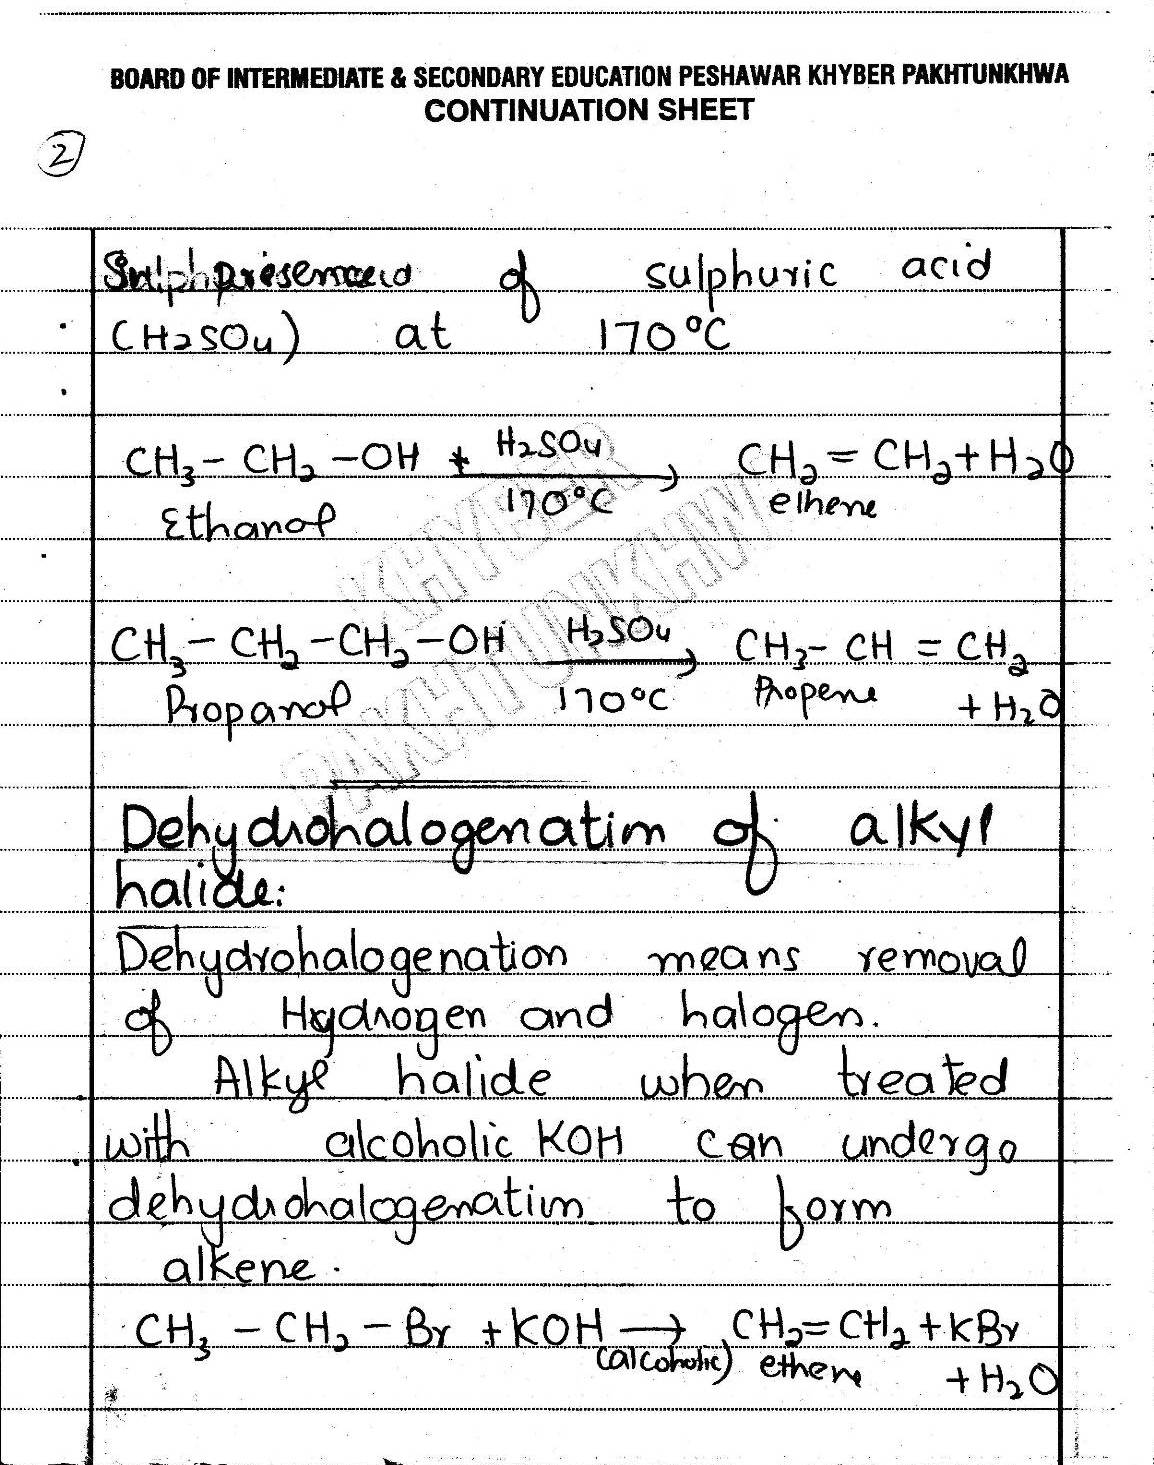 BOARD OF INTERMEDIATE & SECONDARY EDUCATION PESHAWAR KHYBER PAKHTUNKHWA
CONTINUATION SHEET
2
of sulphuric acid
(H2SO4) at 170°C
CH3 - CH2 - OH + H2SO4 170°C → CH2 = CH2 + H2O
Ethanol ethene
CH3 - CH2 - CH2 - OH H2SO4 170°C → CH3 - CH = CH2
Propanol Propene + H2O
KHYBER
PAKHTUNKHW
Dehydrohalogenation of alkyl
halide:
Dehydrohalogenation means removal
of Hydrogen and halogen.
Alkyl halide when treated
with alcoholic KOH can undergo
dehydrohalogenation to form
alkene.
CH3 - CH2 - Br + KOH → CH2 = CH2 + KBr
(alcoholic) ethene + H2O